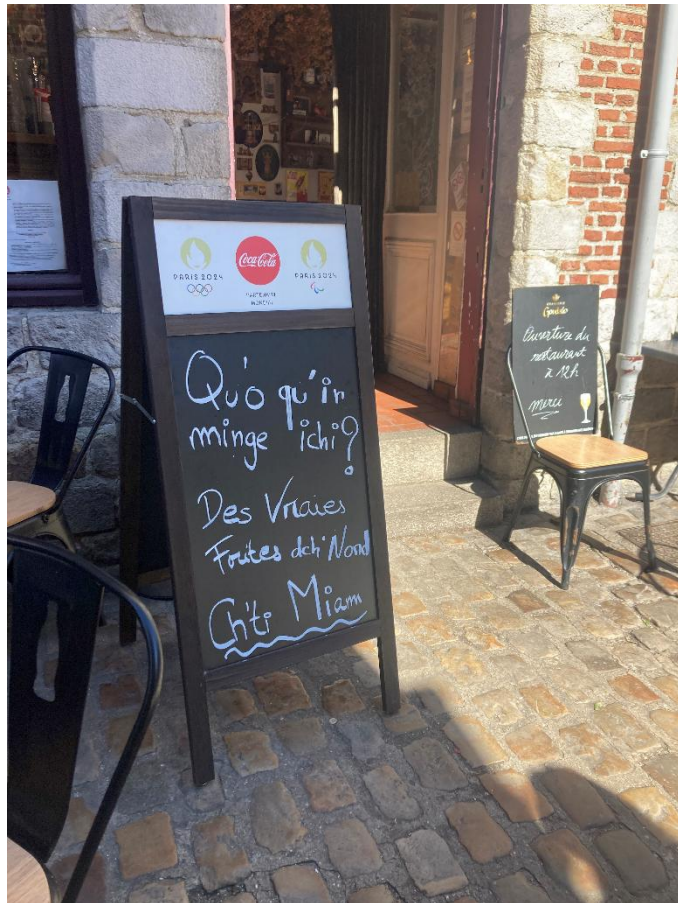 PARIS 2024
Coca-Cola
PARTENAIRE
MONDIAL
PARIS 2024
Qu'o qu'in
minge ichi?
Des Vraies
Frites dch' Nord
Ch'ti Miam
Goudale
Ouverture du
restaurant
à 12h
merci